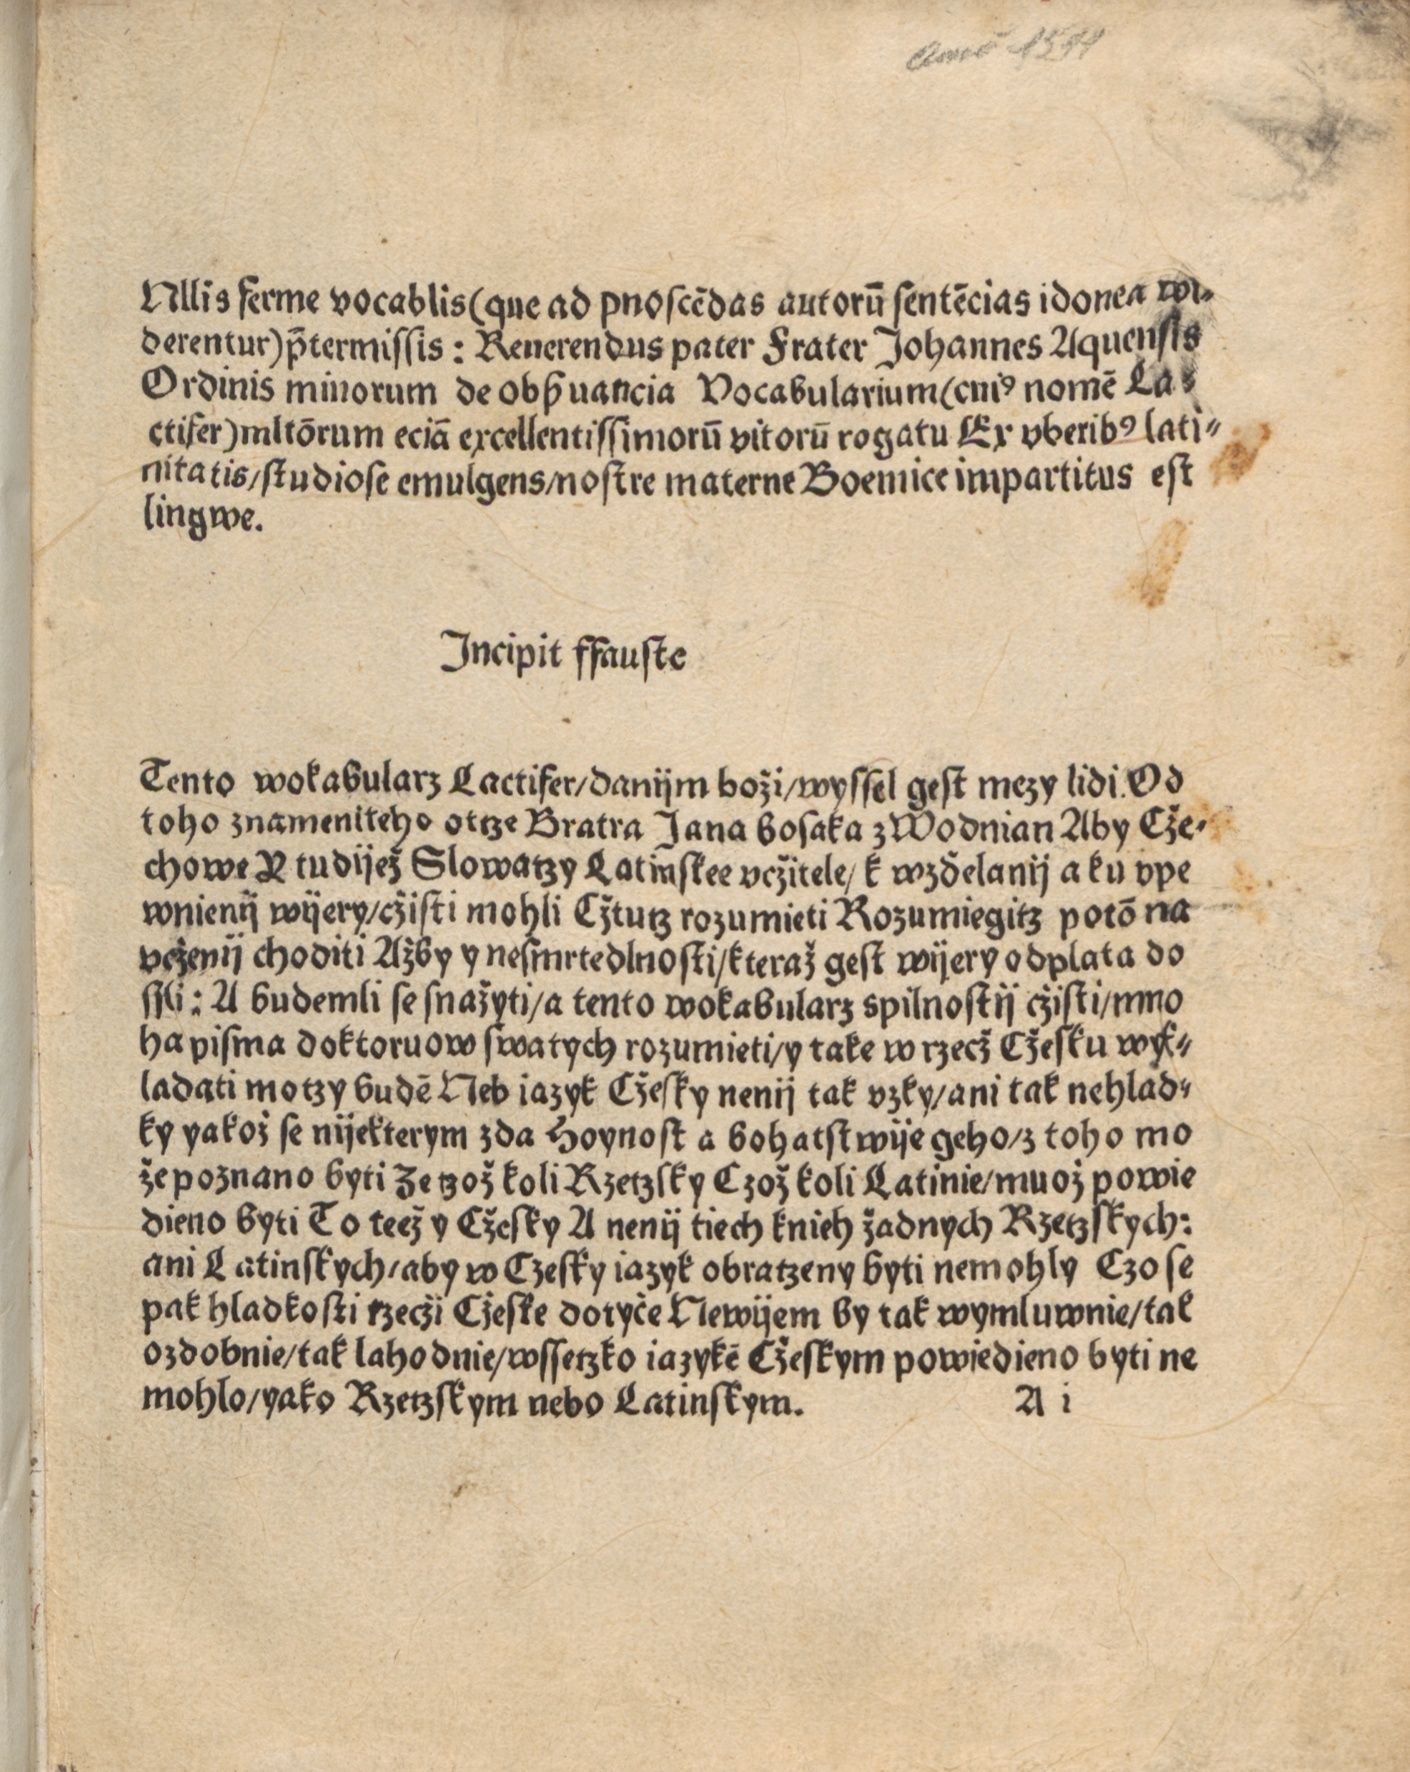 Anno 1511
Nllis ferme vocablis(que ad pnoscēdas autorū sentēcias idonea wi-
derentur)p̄termissis: Reuerendus pater Frater Johannes Aquensis
Ordinis minorum de obꝑuancia Vocabularium(cuiꝰ nomē La-
ctifer)mltōrum eciā excellentissimorū vitorū rogatu Ex vberibꝰ lati-
nitatis/studiose emulgens/nostre materne Boemice impartitus est
lingwe.
Incipit ffauste
Tento wokabularz Lactifer/danijm boži/wyssel gest mezy lidi. Od
toho znameniteho otcze Bratra Jana bosaka z Wodnian Aby Cže-
chowe R tudijež Slowatzy Latinskee vcžitele/ k wzdělanij a ku vpe
wnienij wijery/cžisti mohli Cžtutz rozumieti Rozumiegitz potō na
vcženij choditi Ažby y nesmrtedlnosti/kteraž gest wijery odplata do
ssli: A budemli se snažyti/a tento wokabularz spilnostij cžisti/mno
ha pisma doktoruow swatych rozumieti/y take w rzecž Cžesku wyk-
ladati motzy budē Neb iazyk Cžesky nenij tak vzky/ani tak nehlad-
ky yakož se nijekterym zda Hoynost a bohatstwije geho/z toho mo
že poznano byti Ze tzož koli Rzetzsky Czož koli Latinie/muož powie
dieno byti To teež y Cžesky A nenij tiech knieh žadnych Rzetzskych:
ani Latinskych/aby w Czesky iazyk obratzeny byti nemohly Czo se
pak hladkosti rzecži Cžeske dotyče Newijem by tak wymluwnie/tak
ozdobnie/tak lahodnie/wssetzko iazykē Cžeskym powiedieno byti ne
mohlo/yako Rzetzskym nebo Latinskym. A i